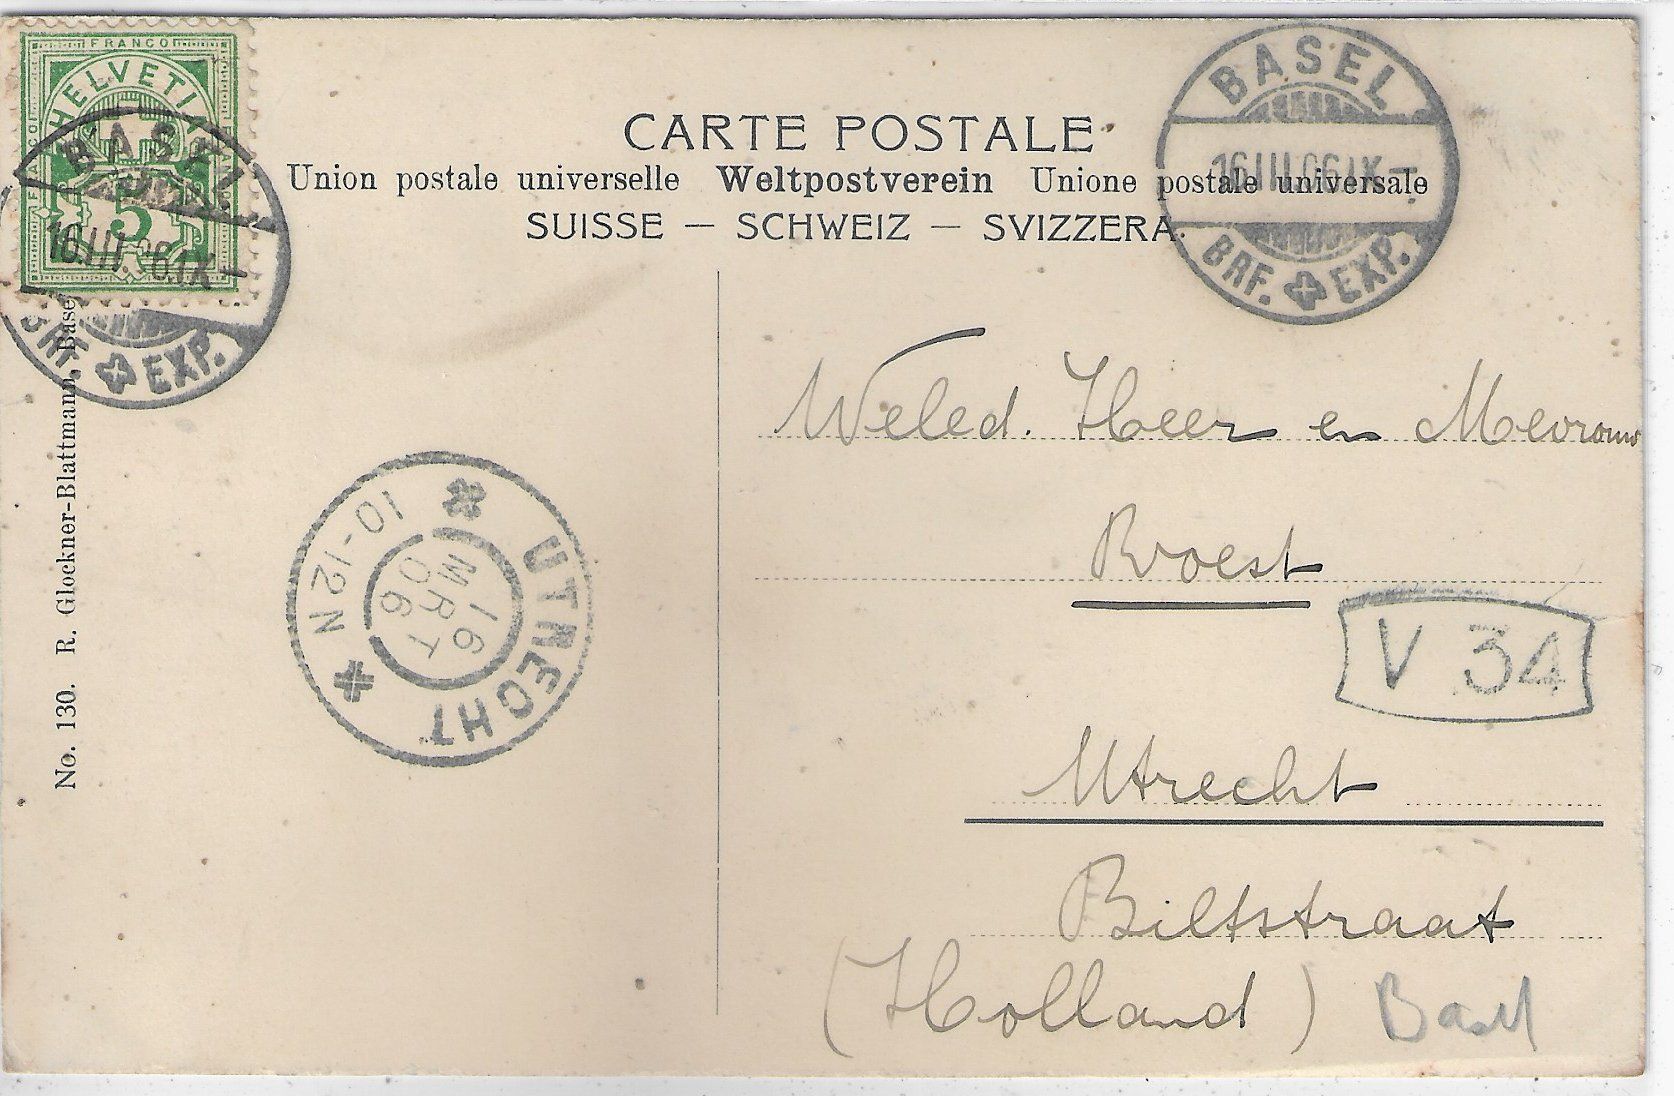 FRANCO
HELVETIA
FRANCO
FRANCO
5
BASEL
16.III.06.IX-
BRF. EXP.
BASEL
16.III.06.IX-
BRF. EXP.
CARTE POSTALE
Union postale universelle Weltpostverein Unione postale universale
SUISSE — SCHWEIZ — SVIZZERA.
No. 130. R. Glockner-Blattmann, Basel
UTRECHT
16
MRT
06
10-12N
Weled. Heer en Mevrouw
Broest
V 34
Utrecht
Biltstraat
(Holland)
Basel